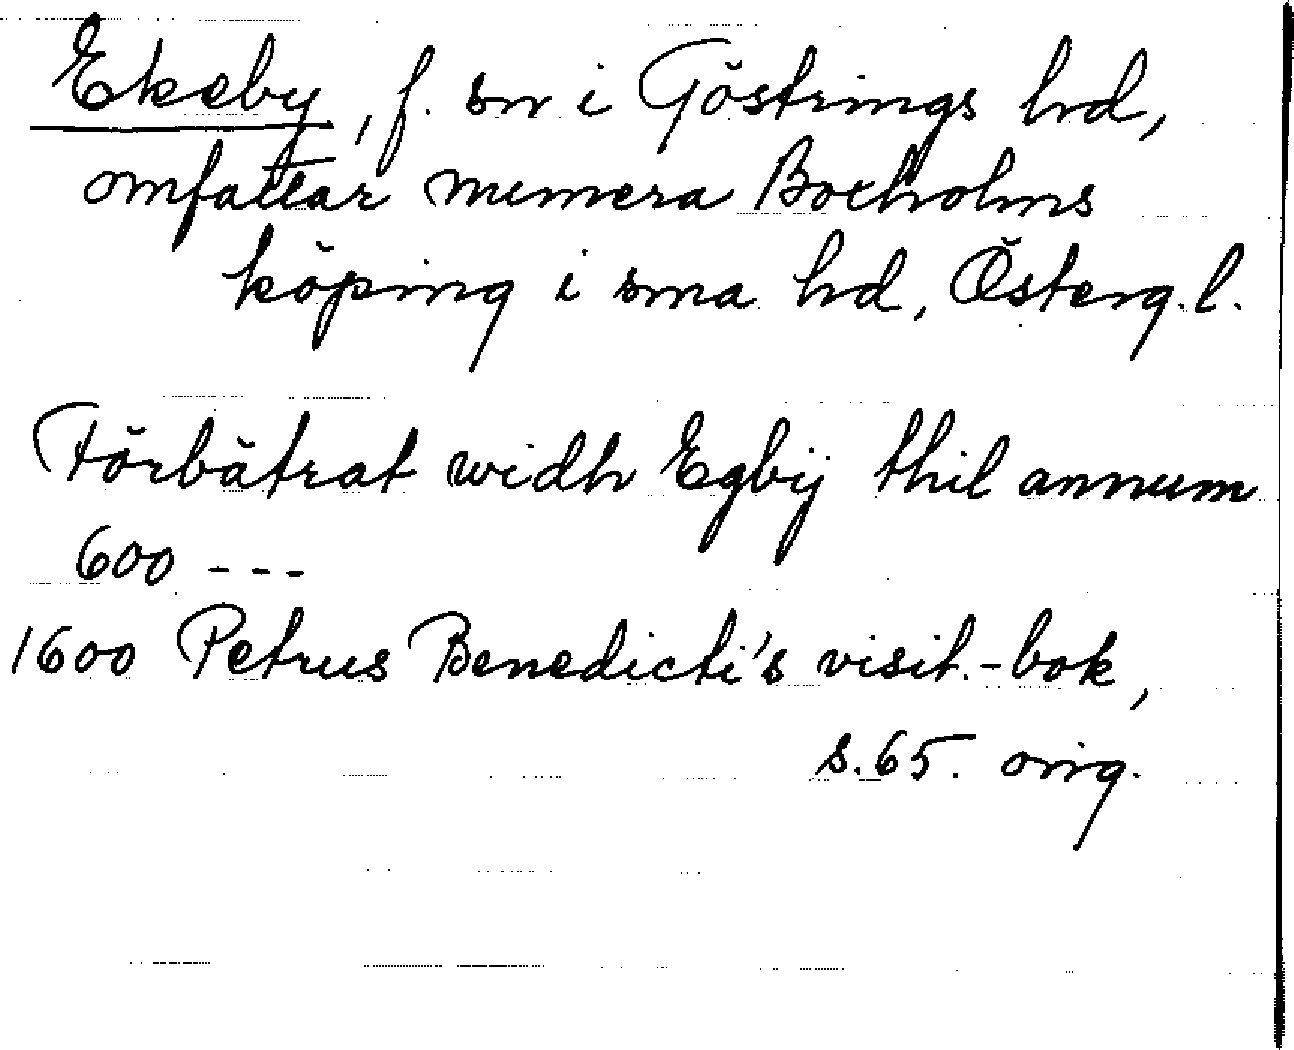 Ekeby, f. sn i Göstrings hd,
omfattar numera Boxholms
köping i sma hd, Österg.l.
Förbätrat widh Egbÿ thil annum
600 ---
1600 Petrus Benedicti's visit.-bok,
s.65. orig.